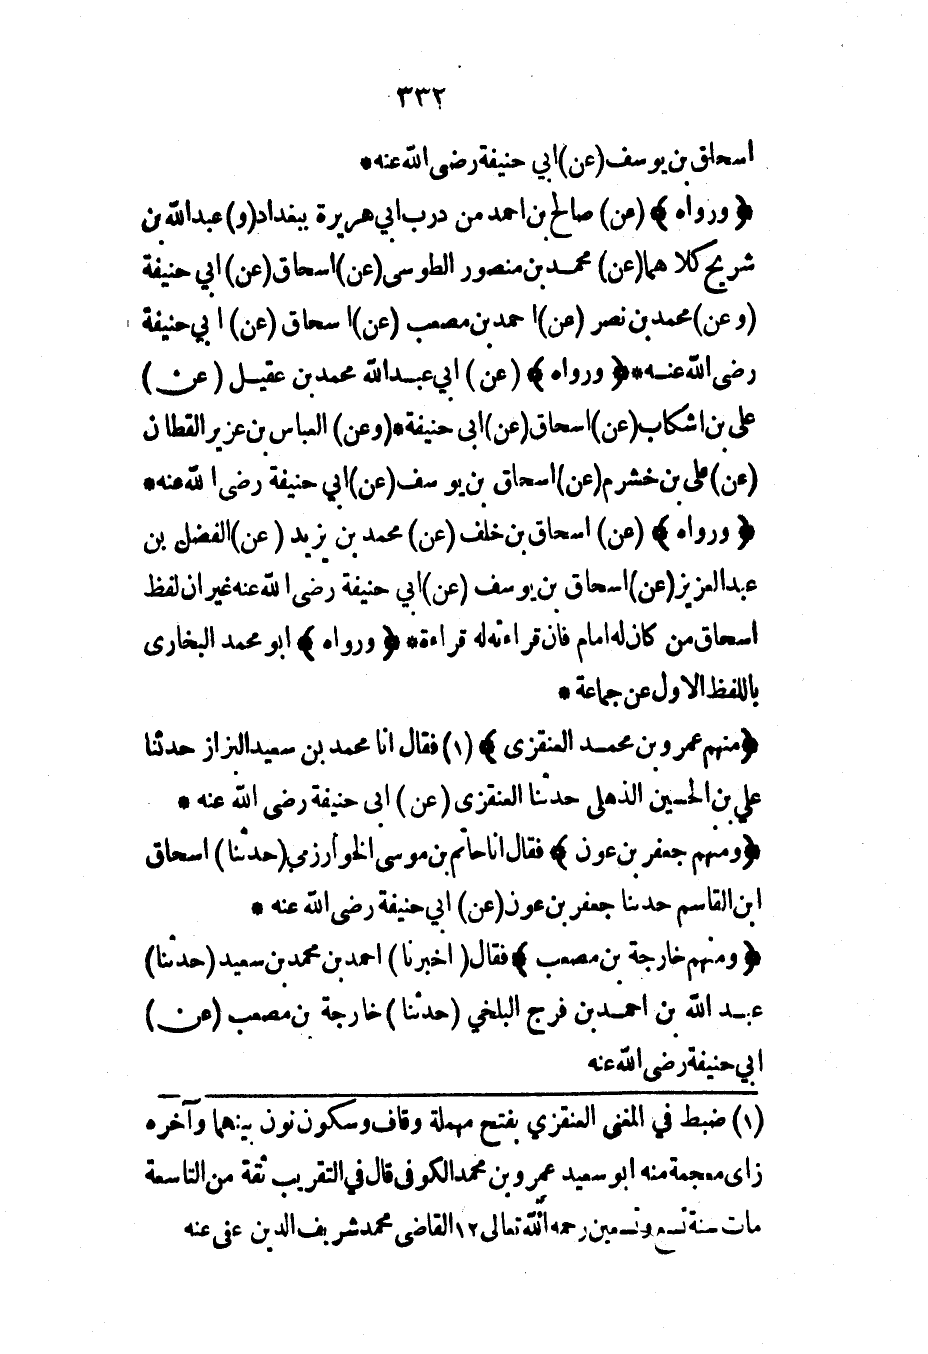 ٣٣٢
اسحاق بن يوسف (عن) ابي حنيفة رضى الله عنه *
﴿ ورواه ﴾ (عن) صالح بن احمد من درب ابي هريرة ببغداد (و) عبد الله بن
شريح كلاهما (عن) محمد بن منصور الطوسى (عن) اسحاق (عن) ابي حنيفة
(وعن) محمد بن نصر (عن) احمد بن مصعب (عن) اسحاق (عن) ابي حنيفة
رضى الله عنه * ﴿ ورواه ﴾ (عن) ابي عبد الله محمد بن عقيل (عن)
على بن اشكاب (عن) اسحاق (عن) ابى حنيفة * (وعن) العباس بن عزير القطان
(عن) على بن خشرم (عن) اسحاق بن يوسف (عن) ابي حنيفة رضى الله عنه *
﴿ ورواه ﴾ (عن) اسحاق بن خلف (عن) محمد بن يزيد (عن) الفضل بن
عبد العزيز (عن) اسحاق بن يوسف (عن) ابي حنيفة رضى الله عنه غير ان لفظ
اسحاق من كان له امام فان قراءته له قراءة * ﴿ ورواه ﴾ ابو محمد البخارى
باللفظ الاول عن جماعة *
﴿ منهم عمرو بن محمد العنقزى ﴾ (١) فقال انا محمد بن سعيد البزاز حدثنا
علي بن الحسين الذهلى حدثنا العنقزى (عن) ابى حنيفة رضى الله عنه *
﴿ ومنهم جعفر بن عون ﴾ فقال انا حاتم بن موسى الخوارزمي (حدثنا) اسحاق
ابن القاسم حدثنا جعفر بن عون (عن) ابي حنيفة رضى الله عنه *
﴿ ومنهم خارجة بن مصعب ﴾ فقال (اخبرنا) احمد بن محمد بن سعيد (حدثنا)
عبد الله بن احمد بن فرج البلخي (حدثنا) خارجة بن مصعب (عن)
ابي حنيفة رضى الله عنه
(١) ضبط في المغنى العنقزي بفتح مهملة وقاف وسكون نون بينهما وآخره
زاى معجمة منه ابو سعيد عمرو بن محمد الكوفى قال في التقريب ثقة من التاسعة
مات سنة تسع وتسعين رحمه الله تعالى ١٢ القاضى محمد شريف الدين عفى عنه